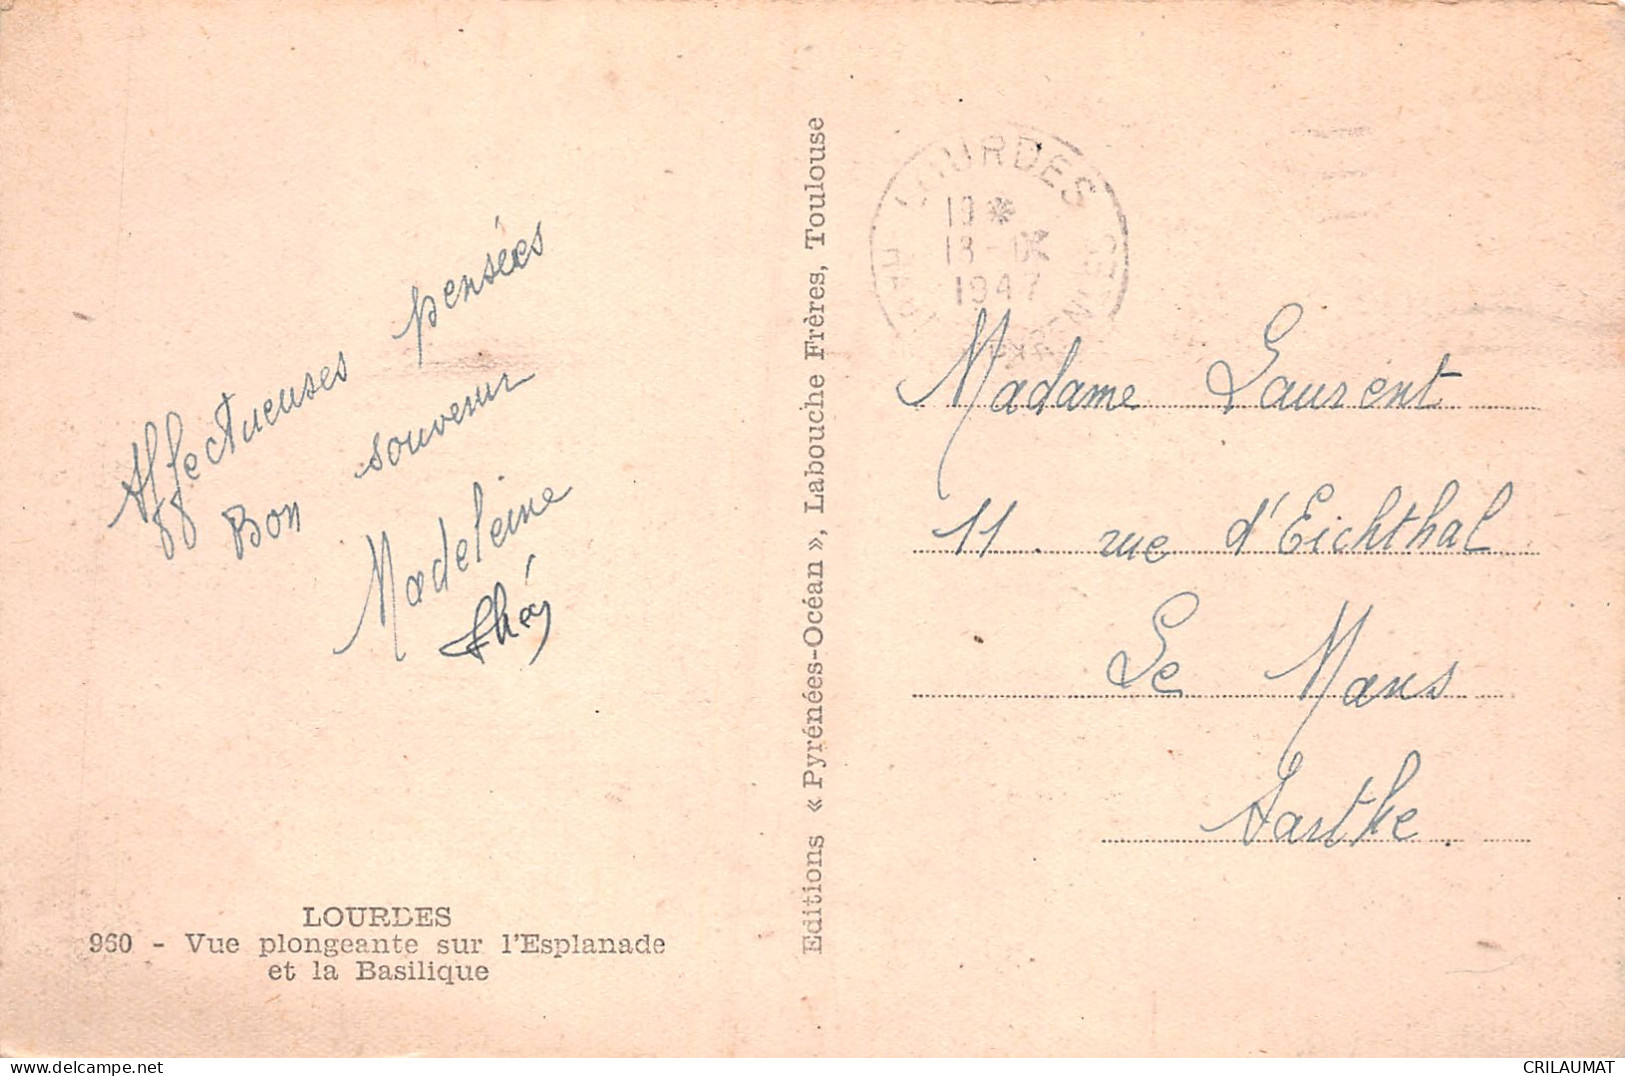 Affectueuses pensées
Bon souvenir
Madeleine
LOURDES
960 - Vue plongeante sur l'Esplanade
et la Basilique
Editions « Pyrénées-Océan », Labouche Frères, Toulouse
LOURDES
19 *
18 -
1947
Madame Laurent
11. rue d'Eichthal
Le Mans
Sarthe.
CRILAUMAT